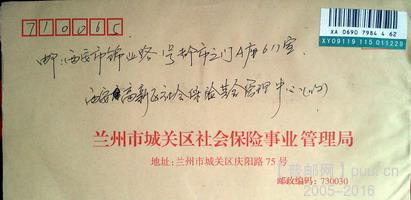 710065
XA 0690 7984 4 62
XY09119 115 011229
邮:西安市锦业路 号 都市之门A座611室
西安高新区社会保险基金管理中心(收)
兰州市城关区社会保险事业管理局
地址:兰州市城关区庆阳路75号
邮政编码:730030
【普邮网】puu.cn
2005-2016